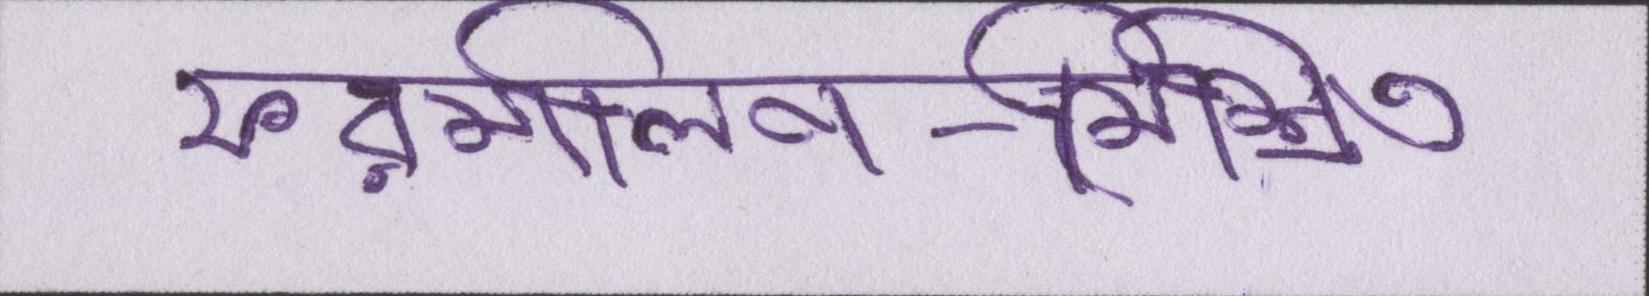 ফরমালিন-মিশ্রিত